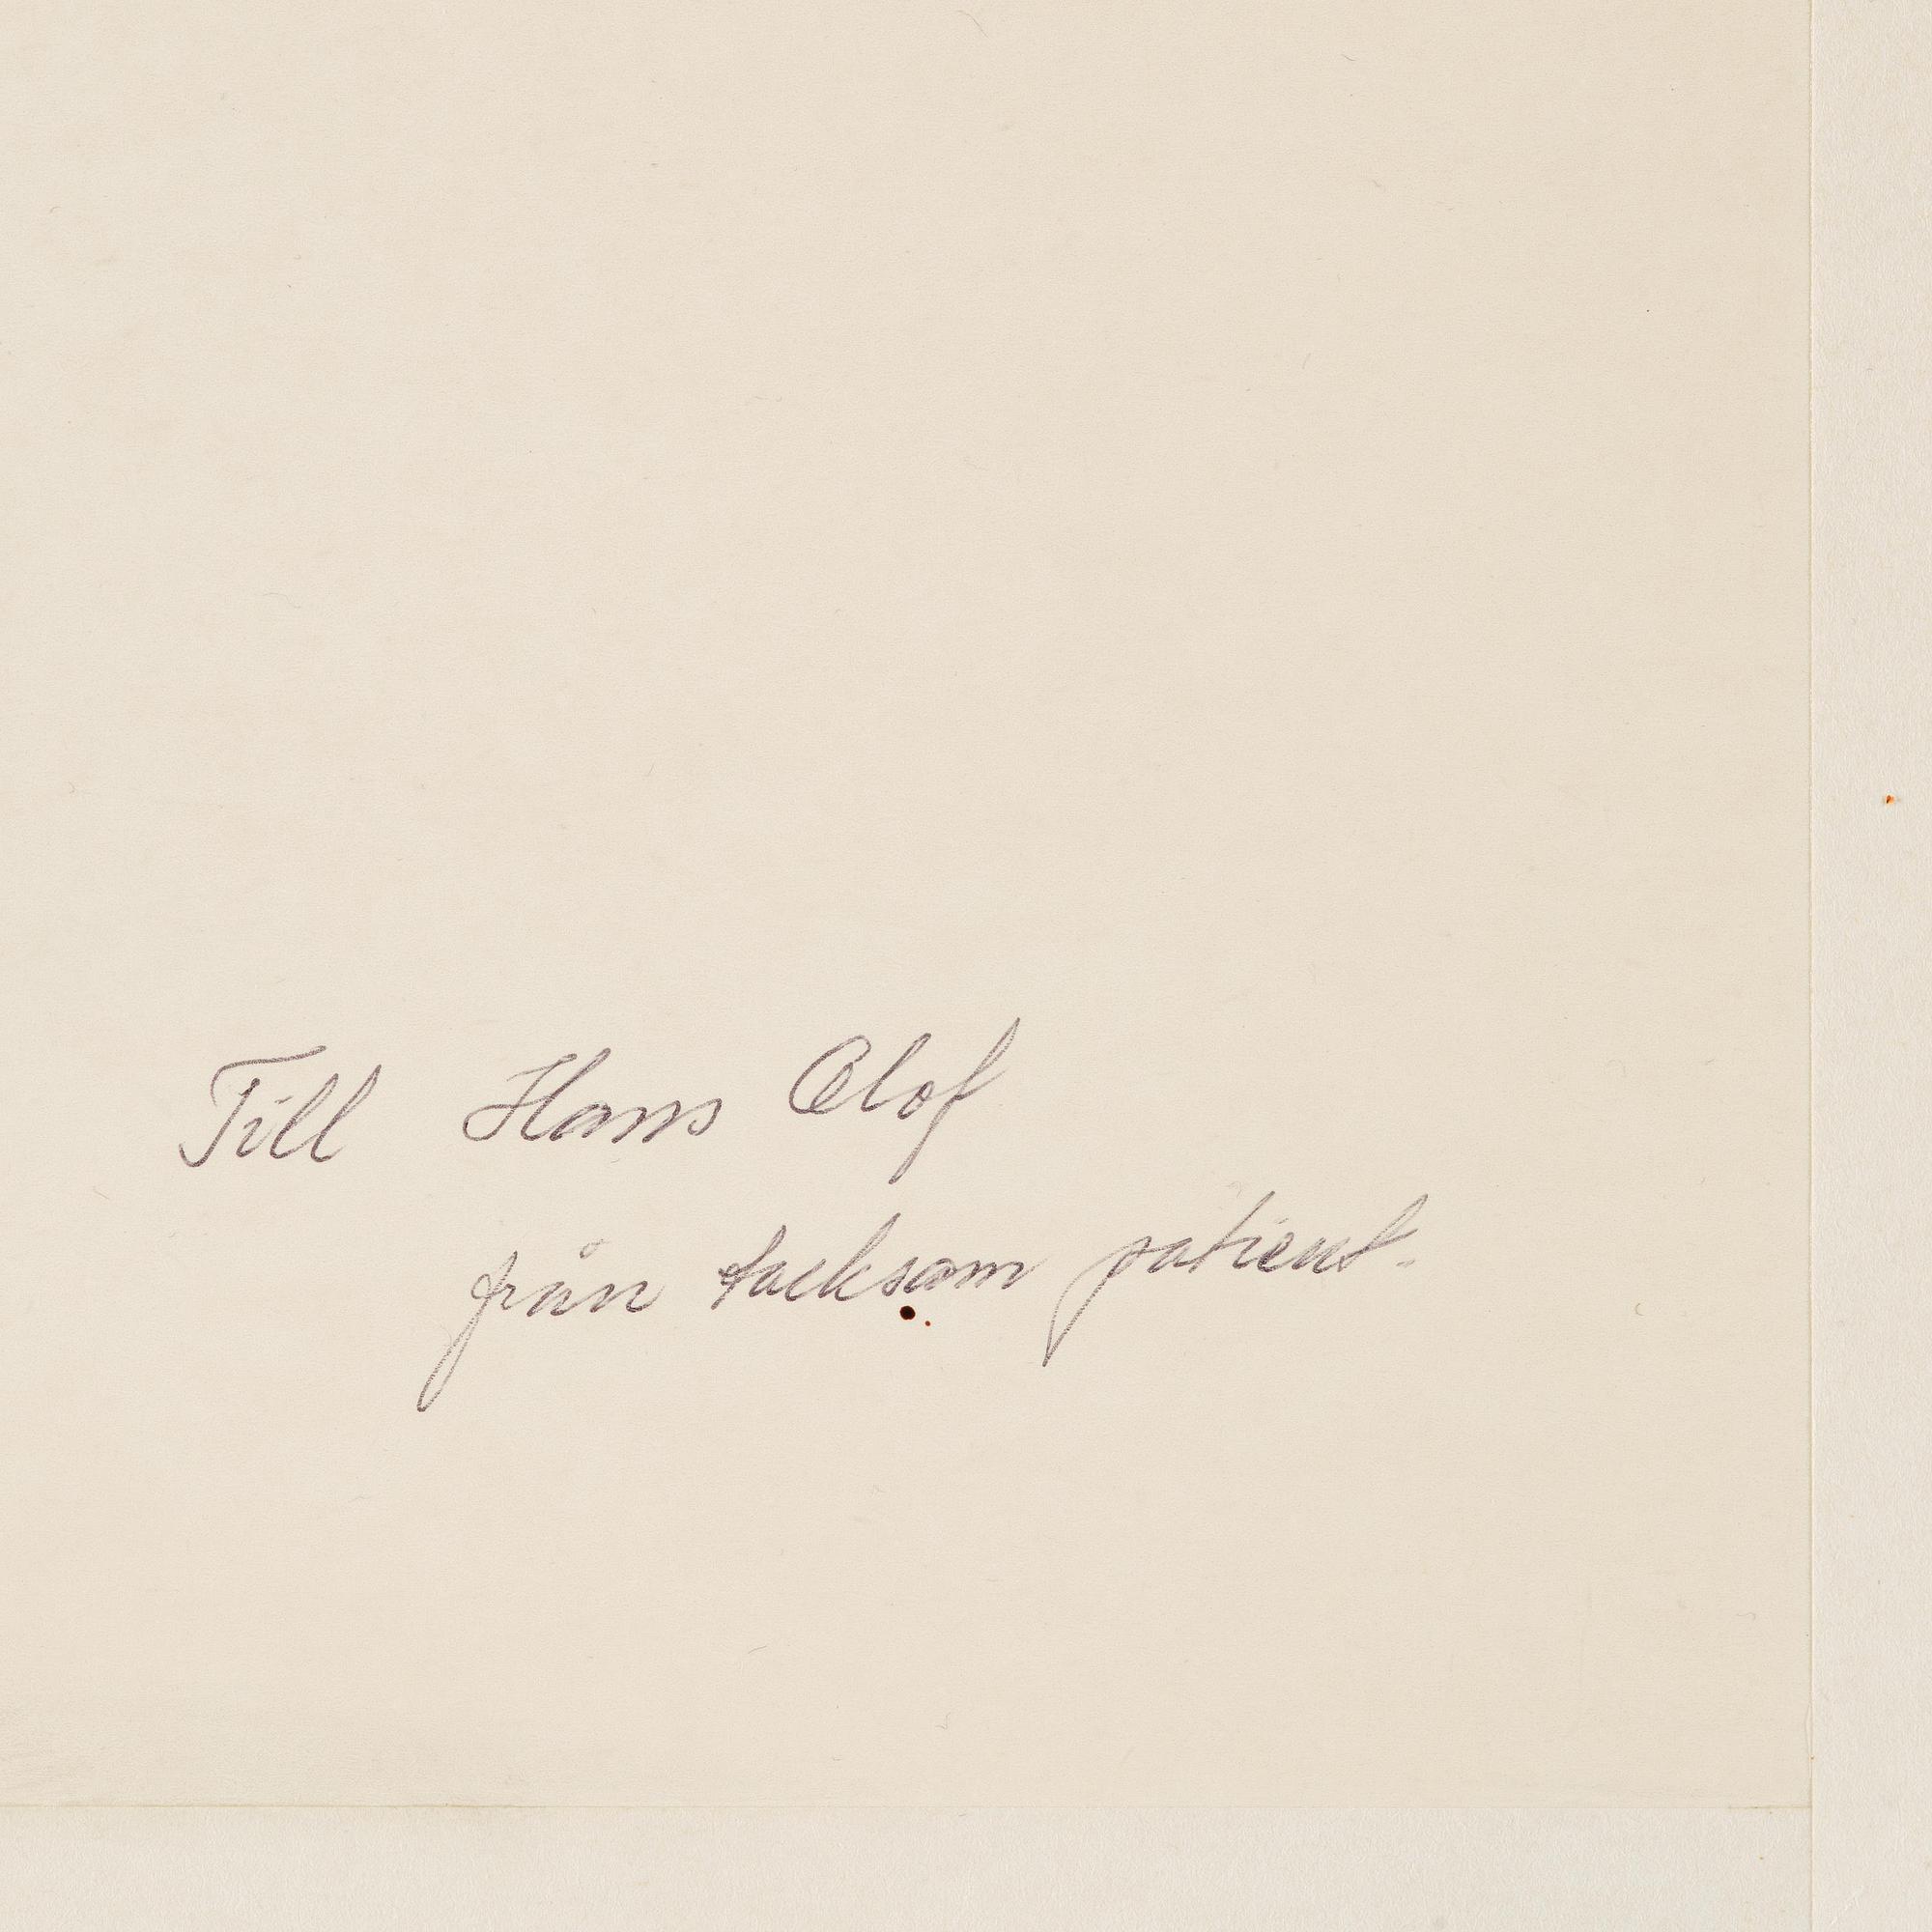 Till Hans Olof
från tacksam patient.